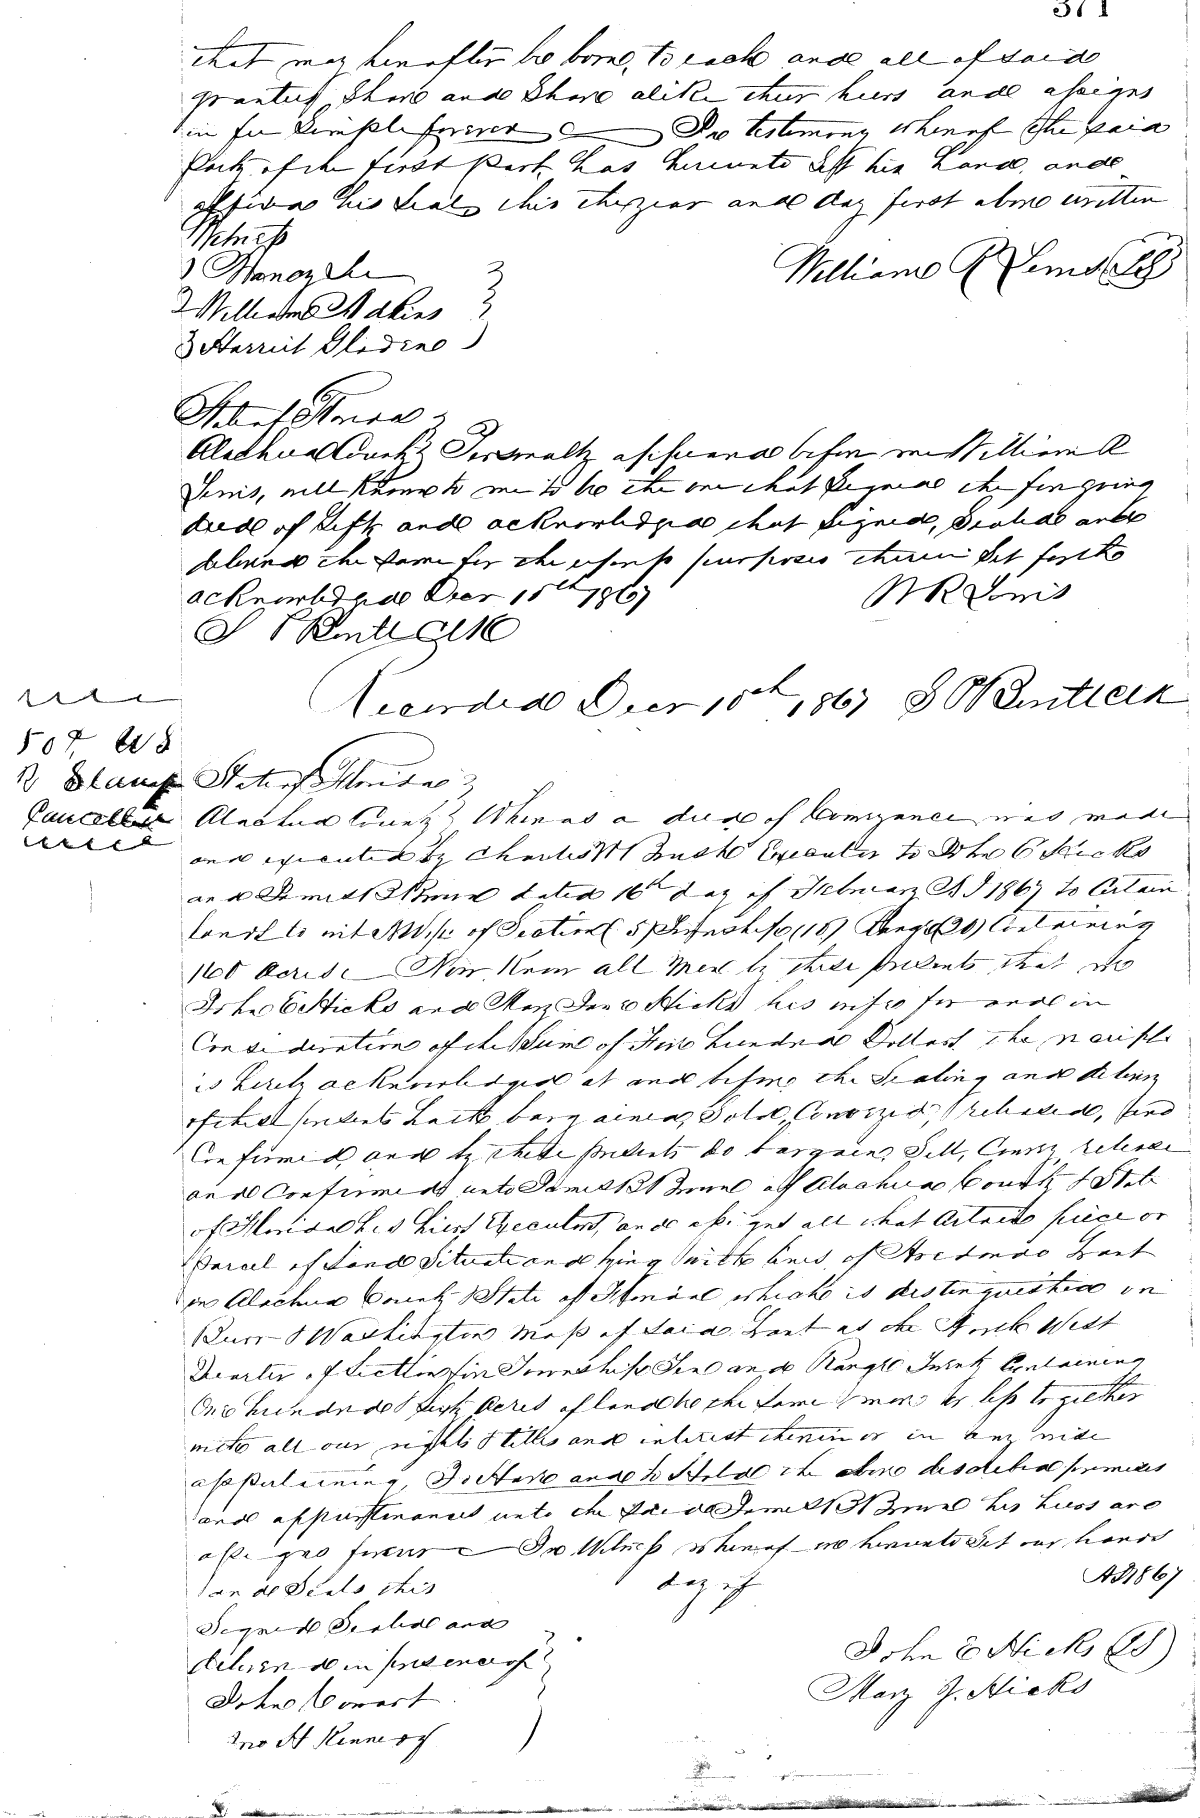 371
that may hereafter be born, to each and all of said
grantees, Share and Share alike their heirs and assigns
in fee Simple forever In testimony whereof the said
Party of the first Part has hereunto Set his hand and
affixed his Seal this the year and day first above written
Witness
1
2 William Adkins
3 Harriet
William R
State of Florida
Alachua County Personally appeared before me William R
well Known to me to be the one that Signed the foregoing
deed of Gift and acknowledged that Signed, Sealed and
delivered the Same for the purposes therein Set forth
acknowledged Decr 1867
W R
Clk
Recorded Decr 10th 1867 Clk
50
R Stamp
Cancelled
State of Florida
Alachua County Whereas a deed of Conveyance was made
and executed by Charles Executor to John C Hicks
and James B Brown dated 16th day of February AD 1867 to Certain
lands to wit of Section (5) Township (10) Range (20) Containing
160 Acres Now Know all Men by these presents that we
John C Hicks and Mary Jane Hicks his wife for and in
Consideration of the Sum of Five hundred Dollars the receipt
is hereby acknowledged at and before the Sealing and delivery
of these presents hath bargained, Sold, Conveyed, released, and
Confirmed, and by these presents do bargain, Sell, Convey, release
and Confirmed unto James B Brown of Alachua County & State
of Florida his heirs Executors, and assigns all that Certain piece or
Parcel of Land Situate and lying with lines of Arredondo Grant
in Alachua County & State of Florida which is distinguished on
Burr & Washington Map of Said Grant as the North West
Quarter of Section five Township Ten and Range Twenty Containing
One hundred & Sixty Acres of land be the Same more or less together
with all our rights & titles and interest therein or in any wise
appertaining, To Have and to Hold the above described premises
and appurtenances unto the Said James B Brown his heirs and
assigns forever In Witness whereof we hereunto Set our hands
and Seals this day of AD 1867
Signed Sealed and
delivered in presence of
John Cowart
Jno H Kennedy
John C Hicks (LS)
Mary J. Hicks